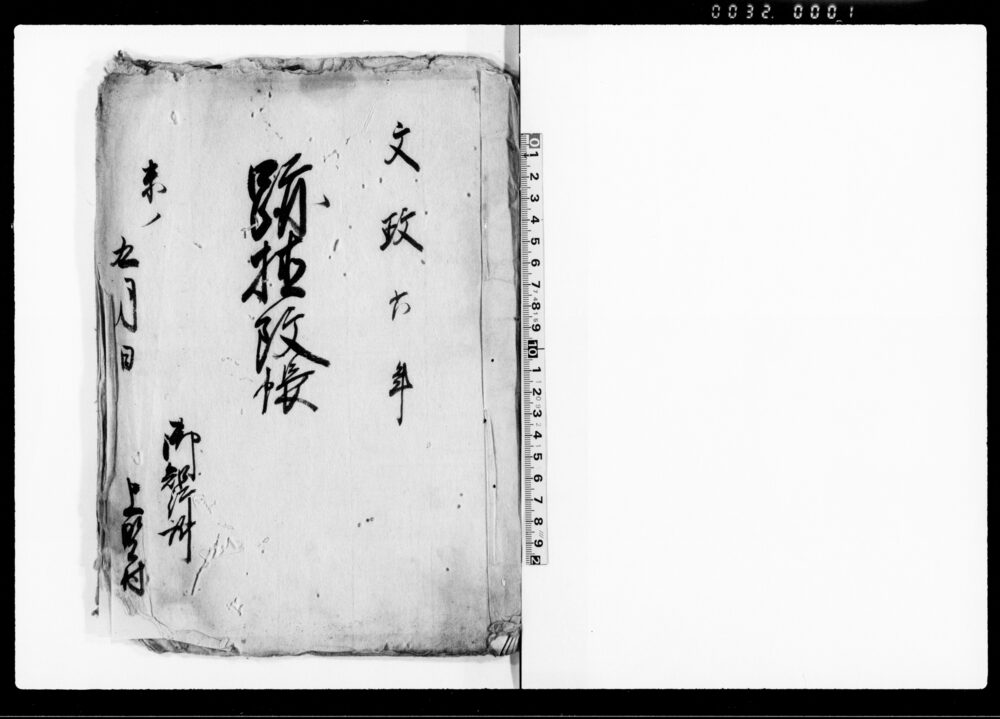 0032. 0001
文政六年
改帳
未ノ
五月日
御知行所
上野村
0 1 2 3 4 5 6 7 8 9 10 1 2 3 4 5 6 7 8 9 2